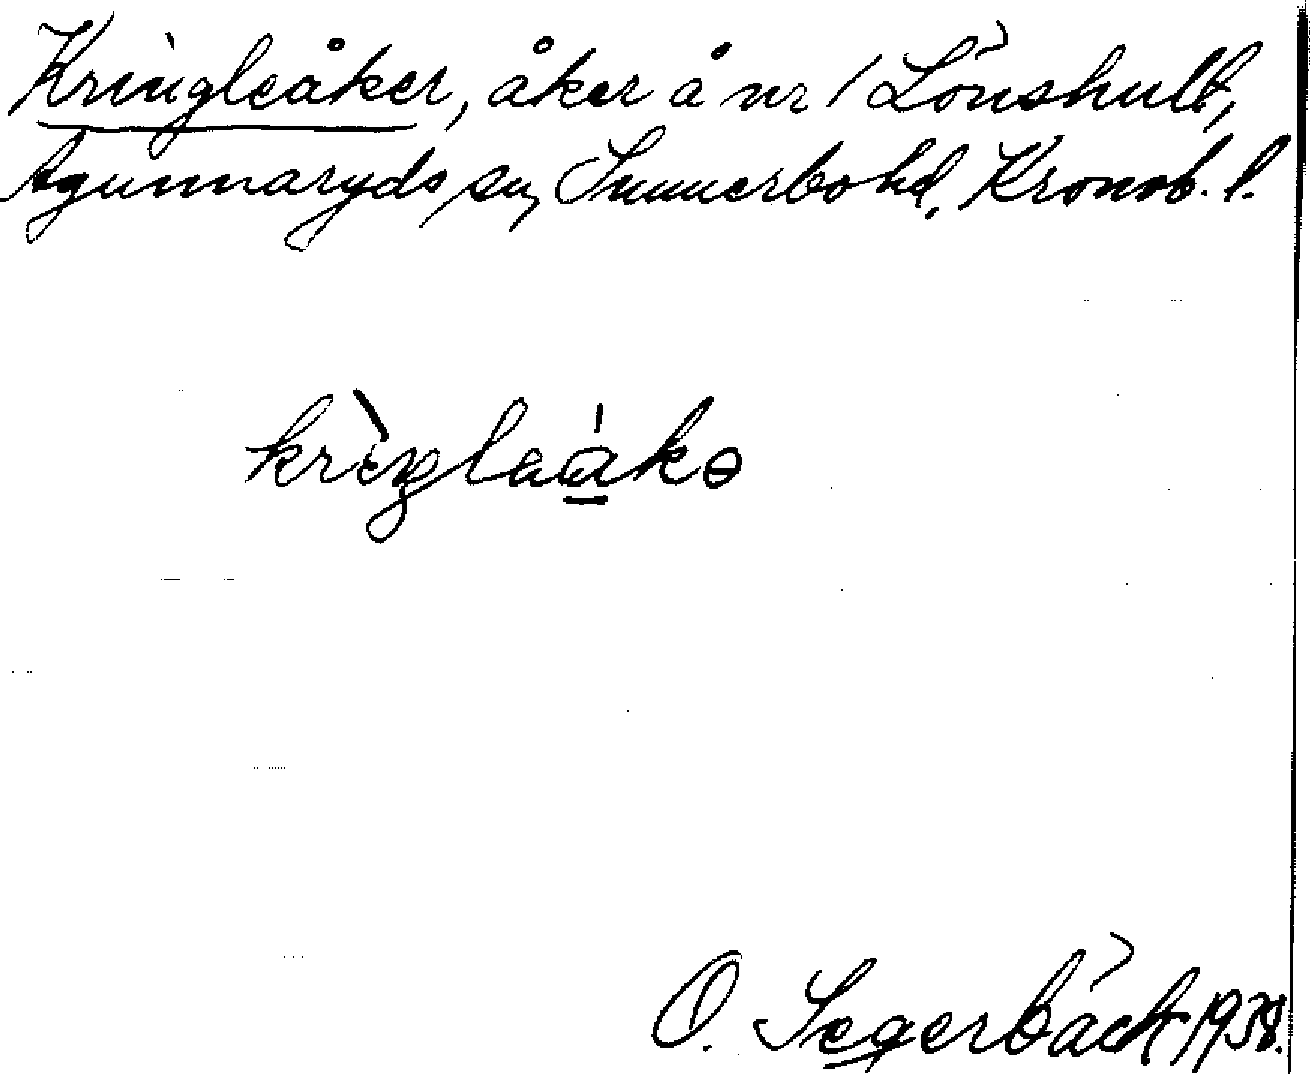 Kringleåker, åker å nr 1 Lönshult,
Agunnaryds sn, Sunnerbo hd, Kronob. l.
krìŋlaákə
O. Segerbäck 1938.